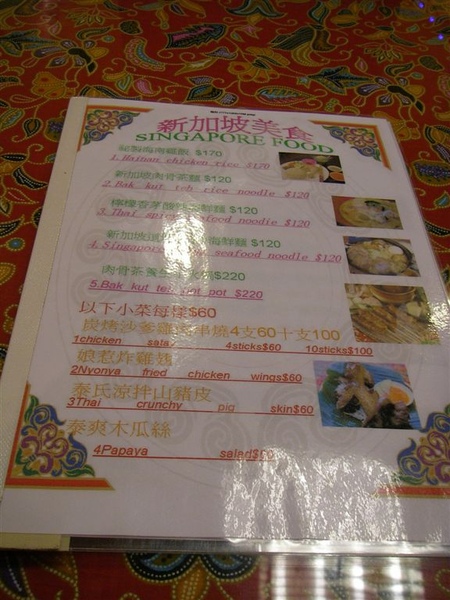 新加坡美食
SINGAPORE FOOD
海南雞飯 $170
1. Hainan chicken rice $170
新加坡肉骨茶麵 $120
2. Bak kut teh rice noodle $120
檸檬香茅酸辣海鮮麵 $120
3. Thai seafood noodle $120
新加坡 海鮮麵 $120
4. Singapore seafood noodle $120
肉骨茶養生 鍋$220
5. Bak kut teh hot pot $220
以下小菜每樣$60
炭烤沙爹雞肉串燒4支60十支100
1chicken satay 4sticks$60 10sticks$100
娘惹炸雞翅
2Nyonya fried chicken wings$60
泰氏涼拌山豬皮
3Thai crunchy pig skin$60
泰爽木瓜絲
4Papaya salad$60